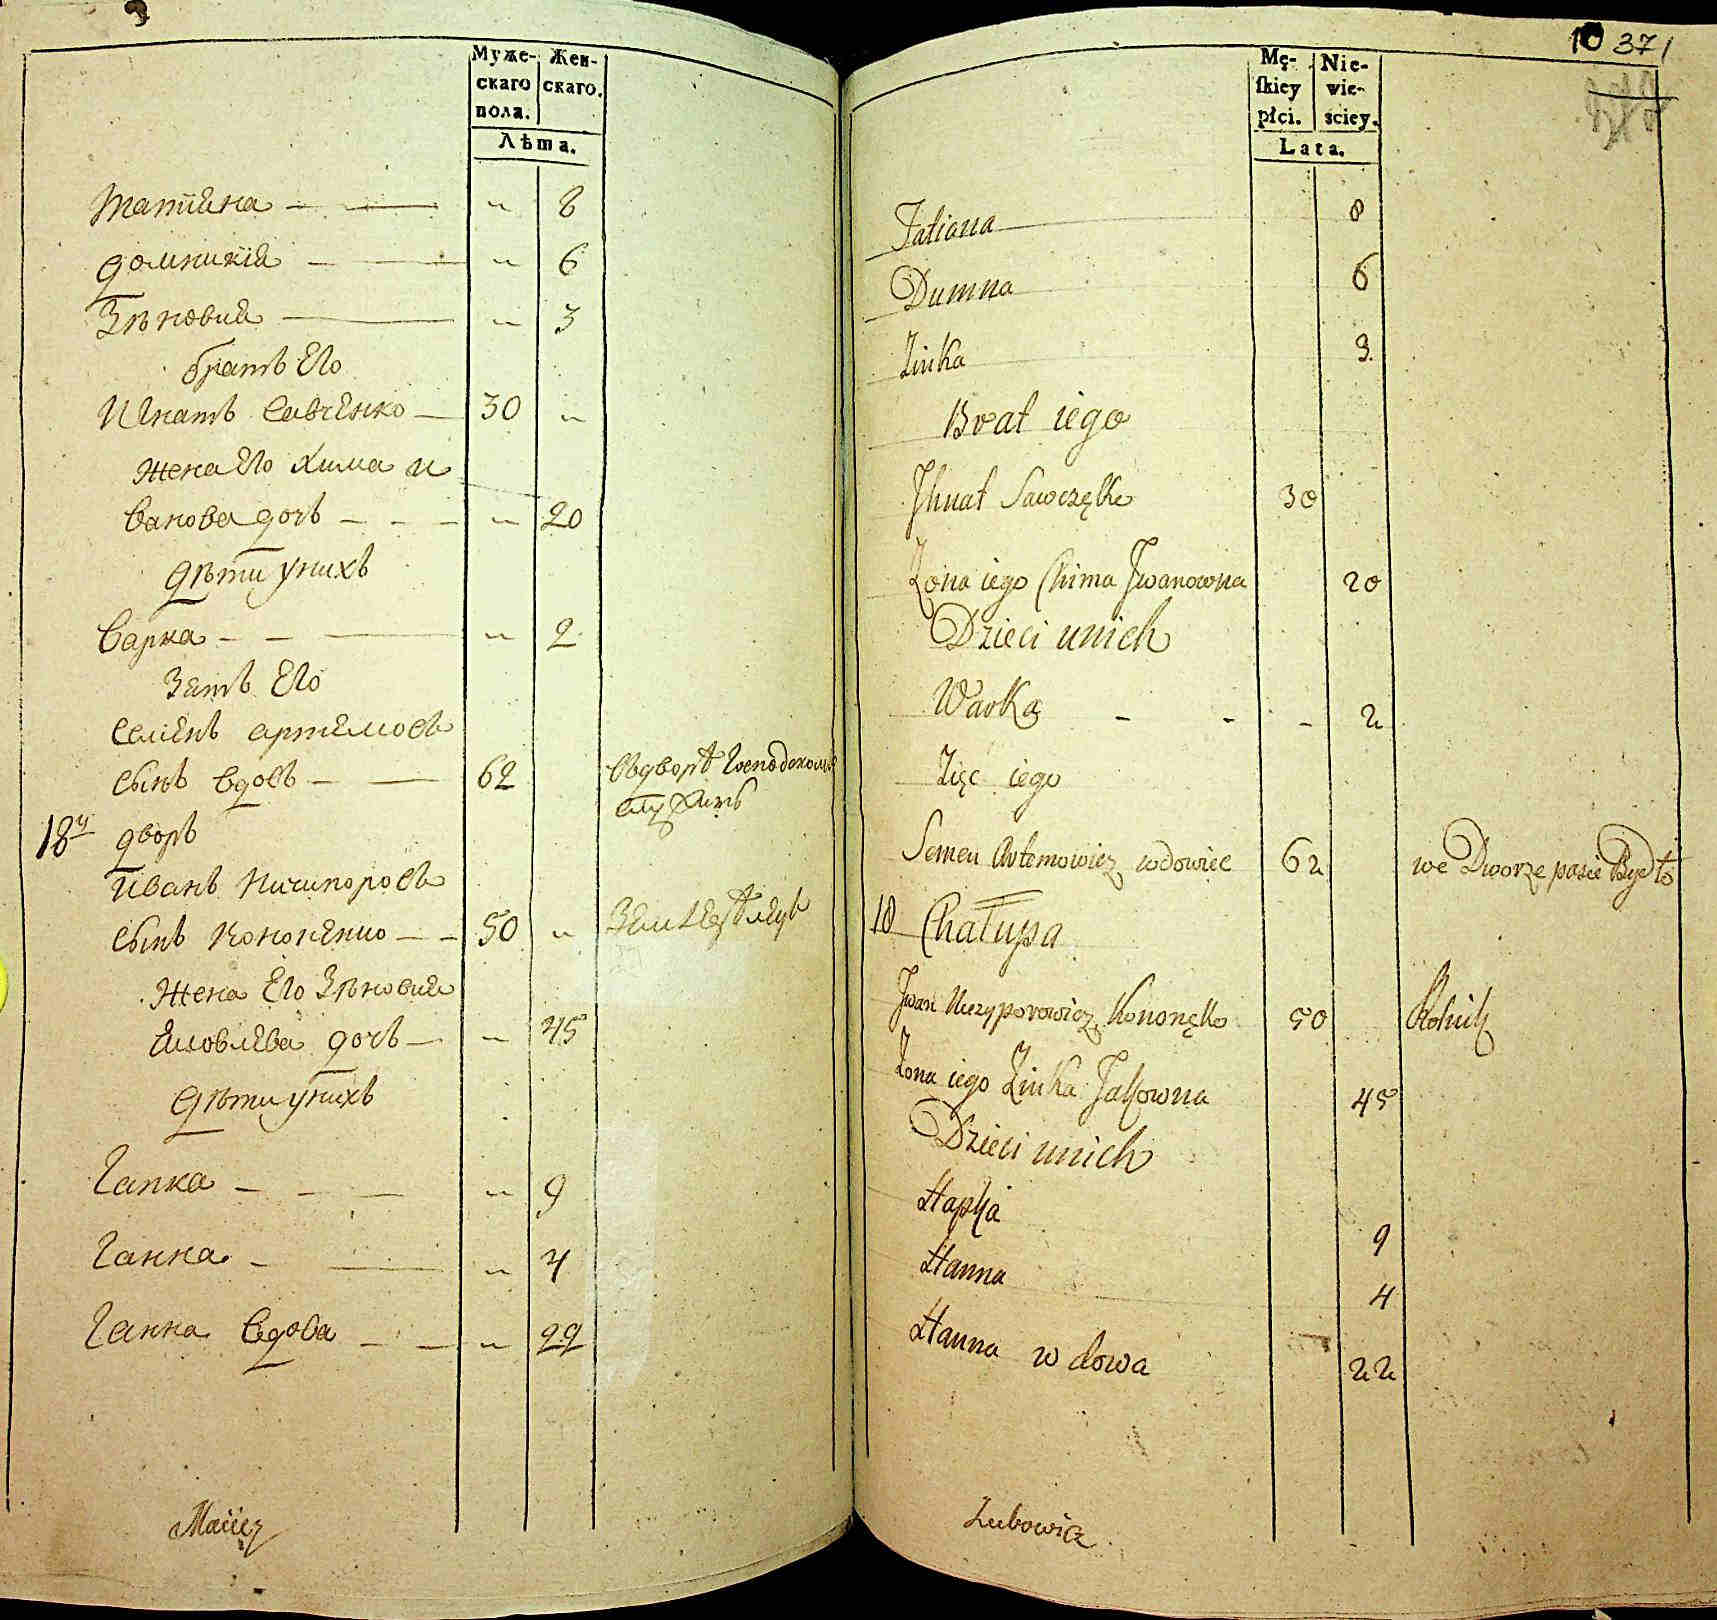 Муже- Жен-
скаго скаго.
пола.
Лѣта.
Татiяна — — „ 8
домникiя — — „ 6
Зѣновия — „ 3
братъ Его
Игнатъ Савченко — 30 „
жена Его Хима и
ванова дочь - - - „ 20
дѣти унихъ
Варка - - — „ 2
Зять Его
Семенъ артемовъ
сынъ вдовъ - — 62 въдворѣ Господскомъ
служитъ
18й дворъ
Иванъ Ничипоровъ
сынъ Кононенко - - 50 „ Земледѣлецъ
жена Его Зѣновия
Яковлева дочь - „ 45
дѣти унихъ
Гапка - - - „ 9
Ганна - — „ 4
Ганна вдова - - „ 22
Maciey
10 371
Mę- Nie-
skiey wie-
płci. sciey.
Lata.
Tatiana 8
Dumna 6
Zinka 3
Brat iego
Jhnat Sawczęko 30
Zona iego Chima Jwanowna 20
Dzieci unich
Warka - - - 2
Zięc iego
Semen Artemowicz wdowiec 62 we Dworze pasie Bydło
18 Chałupa
Jwan Niczyporowicz Kononęko 50 Rolnik
Zona iego Zinka Jakowna 45
Dzieci unich
Hapka 9
Hanna 4
Hanna wdowa 22
Lubowicz